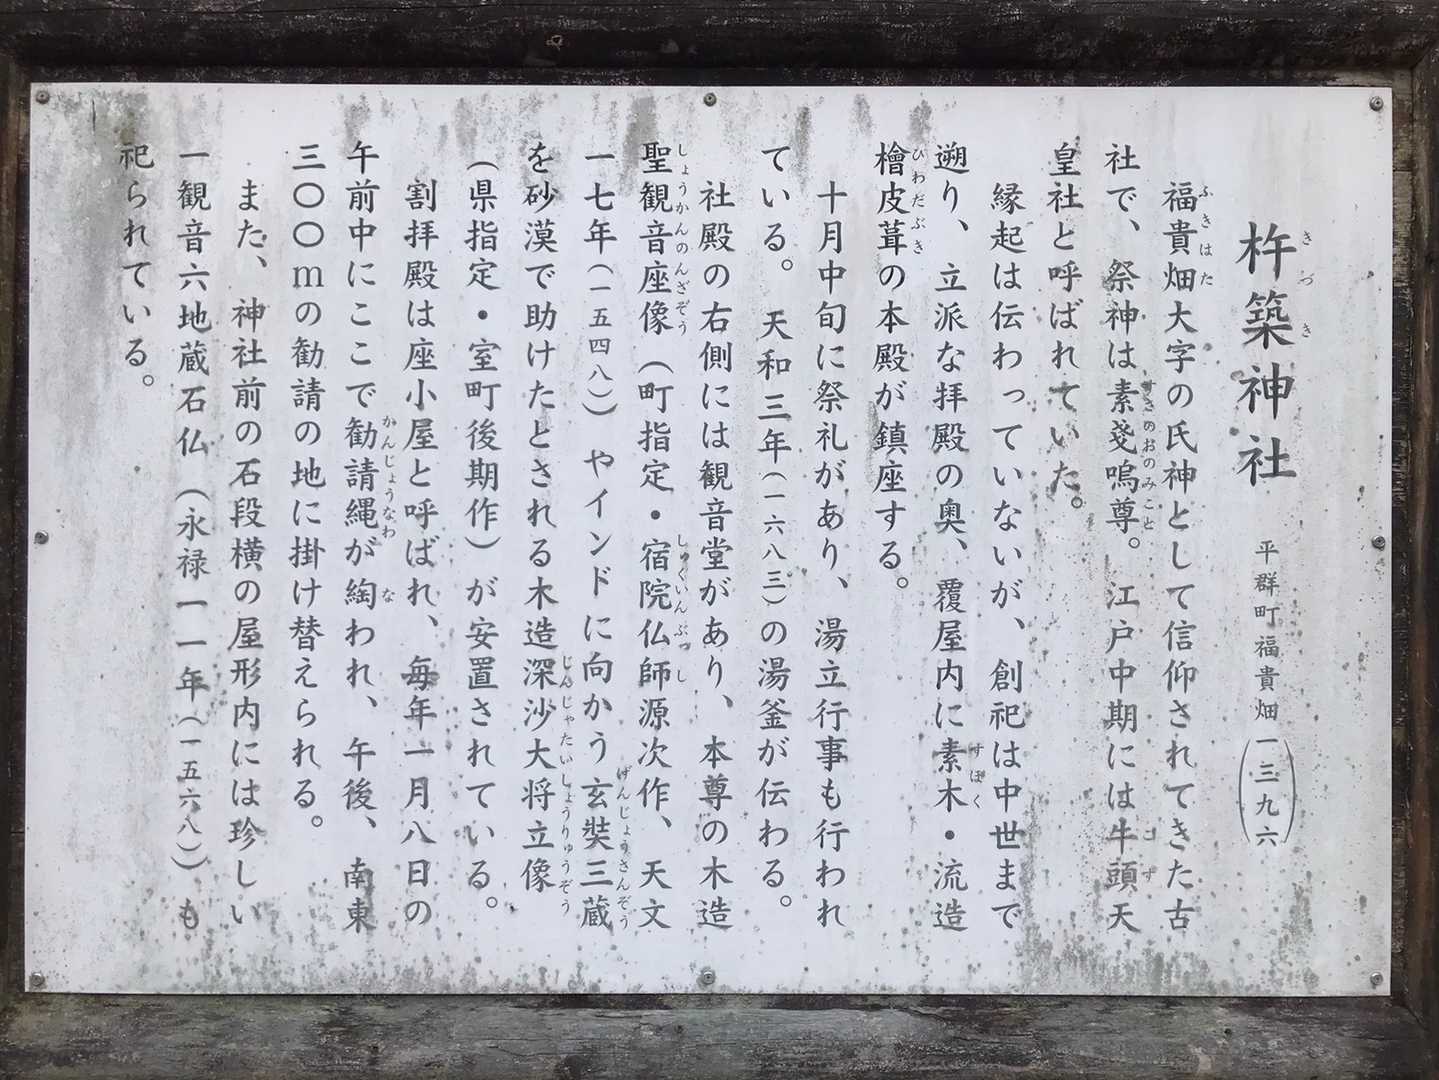 杵築神社 平群町福貴畑(一三九六)
福貴畑大字の氏神として信仰されてきた古
社で、祭神は素戔嗚尊。江戸中期には牛頭天
皇社と呼ばれていた。
縁起は伝わっていないが、創祀は中世まで
遡り、立派な拝殿の奥、覆屋内に素木・流造
檜皮葺の本殿が鎮座する。
十月中旬に祭礼があり、湯立行事も行われ
ている。天和三年(一六八三)の湯釜が伝わる。
社殿の右側には観音堂があり、本尊の木造
聖観音座像(町指定・宿院仏師源次作、天文
一七年(一五四八)やインドに向かう玄奘三蔵
を砂漠で助けたとされる木造深沙大将立像
(県指定・室町後期作)が安置されている。
割拝殿は座小屋と呼ばれ、毎年一月八日の
午前中にここで勧請縄が綯われ、午後、南東
三〇〇mの勧請の地に掛け替えられる。
また、神社前の石段横の屋形内には珍しい
一観音六地蔵石仏(永禄一一年(一五六八)も
祀られている。